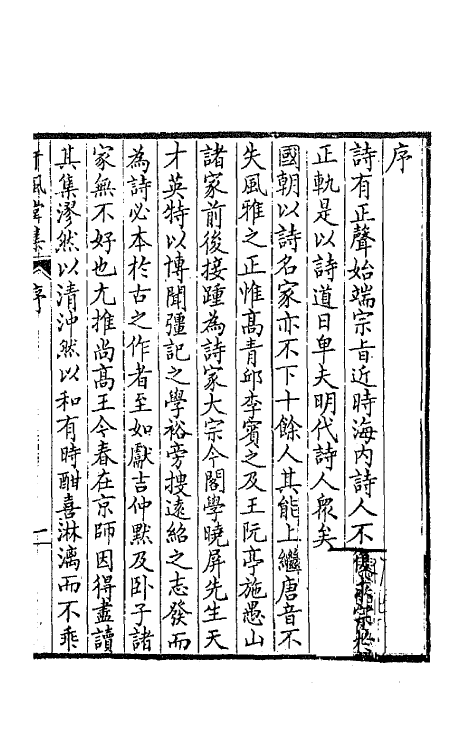 序
詩有正聲始端宗㫖近時海内詩人不
正軌是以詩道日卑夫明代詩人衆矣
國朝以詩名家亦不下十餘人其能上繼唐音不
失風雅之正惟髙青邱李賓之及王阮亭施愚山
諸家前後接踵為詩家大宗今閣學曉屏先生天
才英特以博聞彊記之學裕旁搜遠紹之志發而
為詩必本於古之作者至如獻吉仲黙及卧子諸
家無不好也尤推尚髙王今春在京師因得盡讀
其集漻然以清沖然以和有時酣喜淋漓而不乖
風
集
序
一